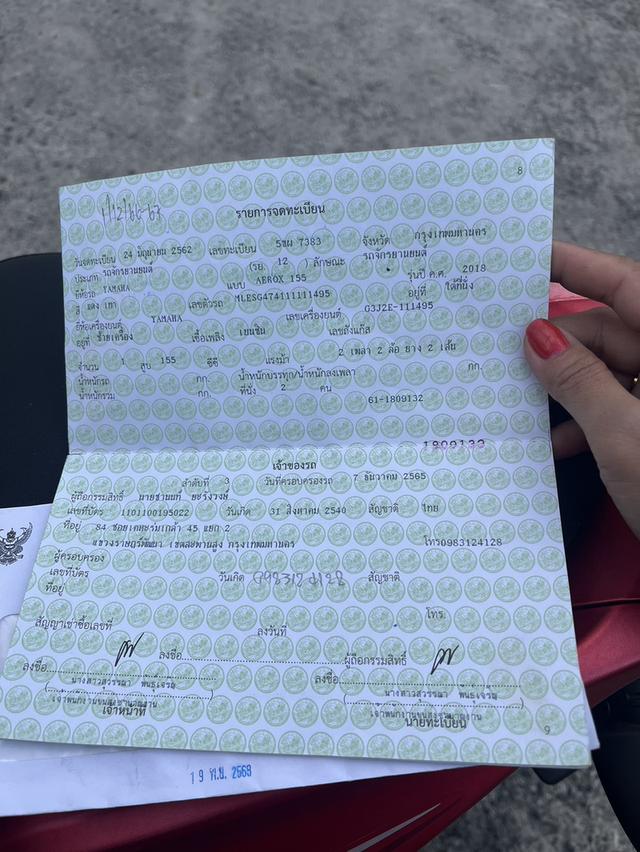 8
1/12/66-67
รายการจดทะเบียน
วันจดทะเบียน 24 มิถุนายน 2562 เลขทะเบียน 5ขผ 7383 จังหวัด กรุงเทพมหานคร
ประเภท รถจักรยานยนต์ (รย. 12 ) ลักษณะ รถจักรยานยนต์
ยี่ห้อรถ YAMAHA แบบ AEROX 155 รุ่นปี ค.ศ. 2018
สี แดง เทา เลขตัวรถ MLESG474111111495 อยู่ที่ ใต้ที่นั่ง
ยี่ห้อเครื่องยนต์ YAMAHA เลขเครื่องยนต์ G3J2E-111495
อยู่ที่ ซ้ายเครื่อง เชื้อเพลิง เบนซิน เลขถังแก๊ส
จำนวน 1 สูบ 155 ซีซี แรงม้า 2 เพลา 2 ล้อ ยาง 2 เส้น
น้ำหนักรถ กก. น้ำหนักบรรทุก/น้ำหนักลงเพลา กก.
น้ำหนักรวม กก. ที่นั่ง 2 คน
61-1809132
1809132
เจ้าของรถ
ลำดับที่ 3 วันที่ครอบครองรถ 7 ธันวาคม 2565
ผู้ถือกรรมสิทธิ์ นายชานนท์
เลขที่บัตร 1101100195022 วันเกิด 31 สิงหาคม 2540 สัญชาติ ไทย
ที่อยู่ 84 ซอยเคหะร่มเกล้า 45 แยก 2
แขวงราษฎร์พัฒนา เขตสะพานสูง กรุงเทพมหานคร โทร0983124128
ผู้ครอบครอง
เลขที่บัตร วันเกิด 0983124128 สัญชาติ
ที่อยู่
โทร.
สัญญาเช่าซื้อเลขที่ ลงวันที่
ลงชื่อ ลงชื่อ ผู้ถือกรรมสิทธิ์
นางสาวสุวรรณา พันธ์เจริญ นางสาวสุวรรณา พันธ์เจริญ
เจ้าพนักงานขนส่งชำนาญงาน เจ้าพนักงานขนส่งชำนาญงาน
เจ้าหน้าที่ นายทะเบียน
9
19 พ.ย. 2568